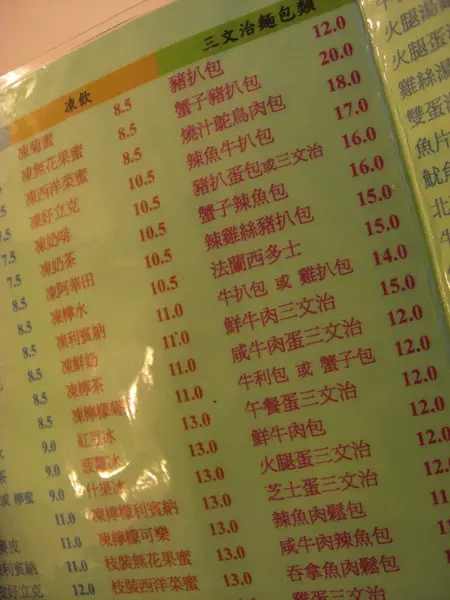 凍飲
凍菊蜜 8.5
凍無花果蜜 8.5
凍西洋菜蜜 8.5
凍好立克 10.5
凍奶啡 10.5
凍奶茶 10.5
凍阿華田 10.5
凍檸水 10.5
凍利賓納 11.0
凍鮮奶 11.0
凍檸茶 11.0
凍檸檬菊蜜 11.0
紅豆冰 13.0
菠蘿冰 13.0
什果冰 13.0
凍檸檬利賓納 13.0
凍檸檬可樂 13.0
枝裝無花果蜜 13.0
枝裝西洋菜蜜 13.0
三文治麵包類
豬扒包 12.0
蟹子豬扒包 20.0
燒汁鴕鳥肉包 18.0
辣魚牛扒包 17.0
豬扒蛋包或三文治 16.0
蟹子辣魚包 16.0
辣雞絲豬扒包 15.0
法蘭西多士 15.0
牛扒包 或 雞扒包 14.0
鮮牛肉三文治 15.0
咸牛肉蛋三文治 12.0
牛利包 或 蟹子包 12.0
午餐蛋三文治 12.0
鮮牛肉包 12.0
火腿蛋三文治 12.0
芝士蛋三文治 12.0
辣魚肉鬆包
咸牛肉辣魚包
吞拿魚肉鬆包
雞蛋三文治
火腿湯
火腿蛋
雞絲湯
雙蛋
魚片
魷
北